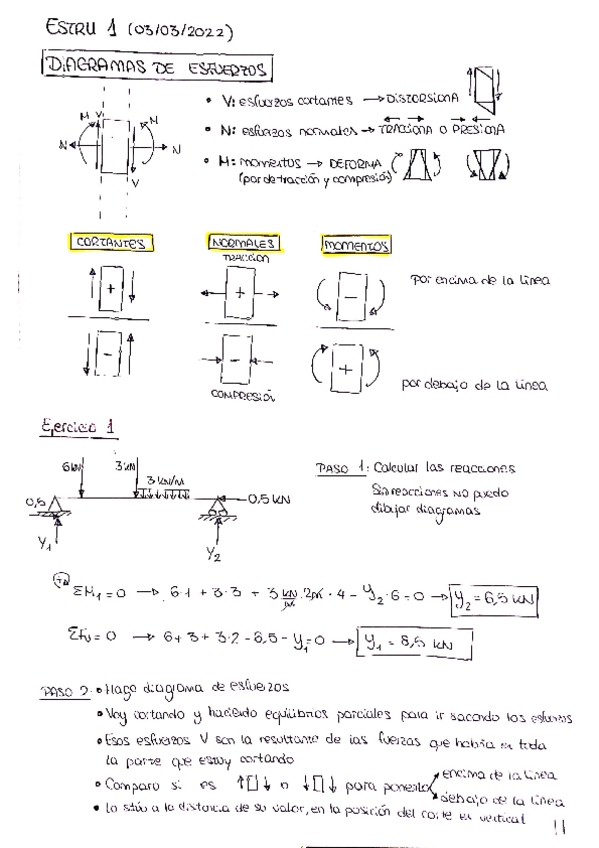 ESTRU 1 (03/03/2022)
DIAGRAMAS DE ESFUERZOS
• V: esfuerzos cortantes → DISTORSIONA
• N: esfuerzos normales → TRACIONA O PRESIONA
• M: momentos → DEFORMA
(por de tracción y compresión)
M V M
N N
V
CORTANTES NORMALES MOMENTOS
TRACCIÓN
+ + - por encima de la línea
- - + por debajo de la línea
COMPRESIÓN
Ejercicio 1
6kN 3kN
3 kN/m
0,5 0,5 KN
Y1 Y2
PASO 1: Calcular las reacciones
Sin reacciones no puedo
dibujar diagramas
ΣM1 = 0 → 6·1 + 3·3 + 3 kN/m · 2m · 4 - Y2·6 = 0 → Y2 = 6,5 kN
ΣFv = 0 → 6 + 3 + 3·2 - 6,5 - Y1 = 0 → Y1 = 8,5 kN
PASO 2: • Hago diagrama de esfuerzos
• Voy cortando y haciendo equilibrios parciales para ir sacando los esfuerzos
• Esos esfuerzos V son la resultante de las fuerzas que había en toda
la parte que estoy cortando
• Comparo si es ↑▯↓ o ↓▯↓ para ponerlo encima de la línea
debajo de la línea
• Lo sitúo a la distancia de su valor, en la posición del corte en vertical